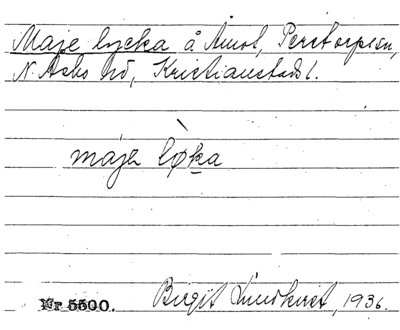 Maje lycka å Åmot, Perstorps sn,
N. Åsbo hd, Kristianstads l.
májə lø̀ka
Nr 5500. Birgit Lundkvist, 1936.